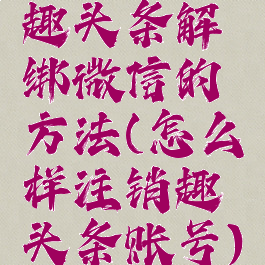 趣头条解
绑微信的
方法(怎么
样注销趣
头条账号)